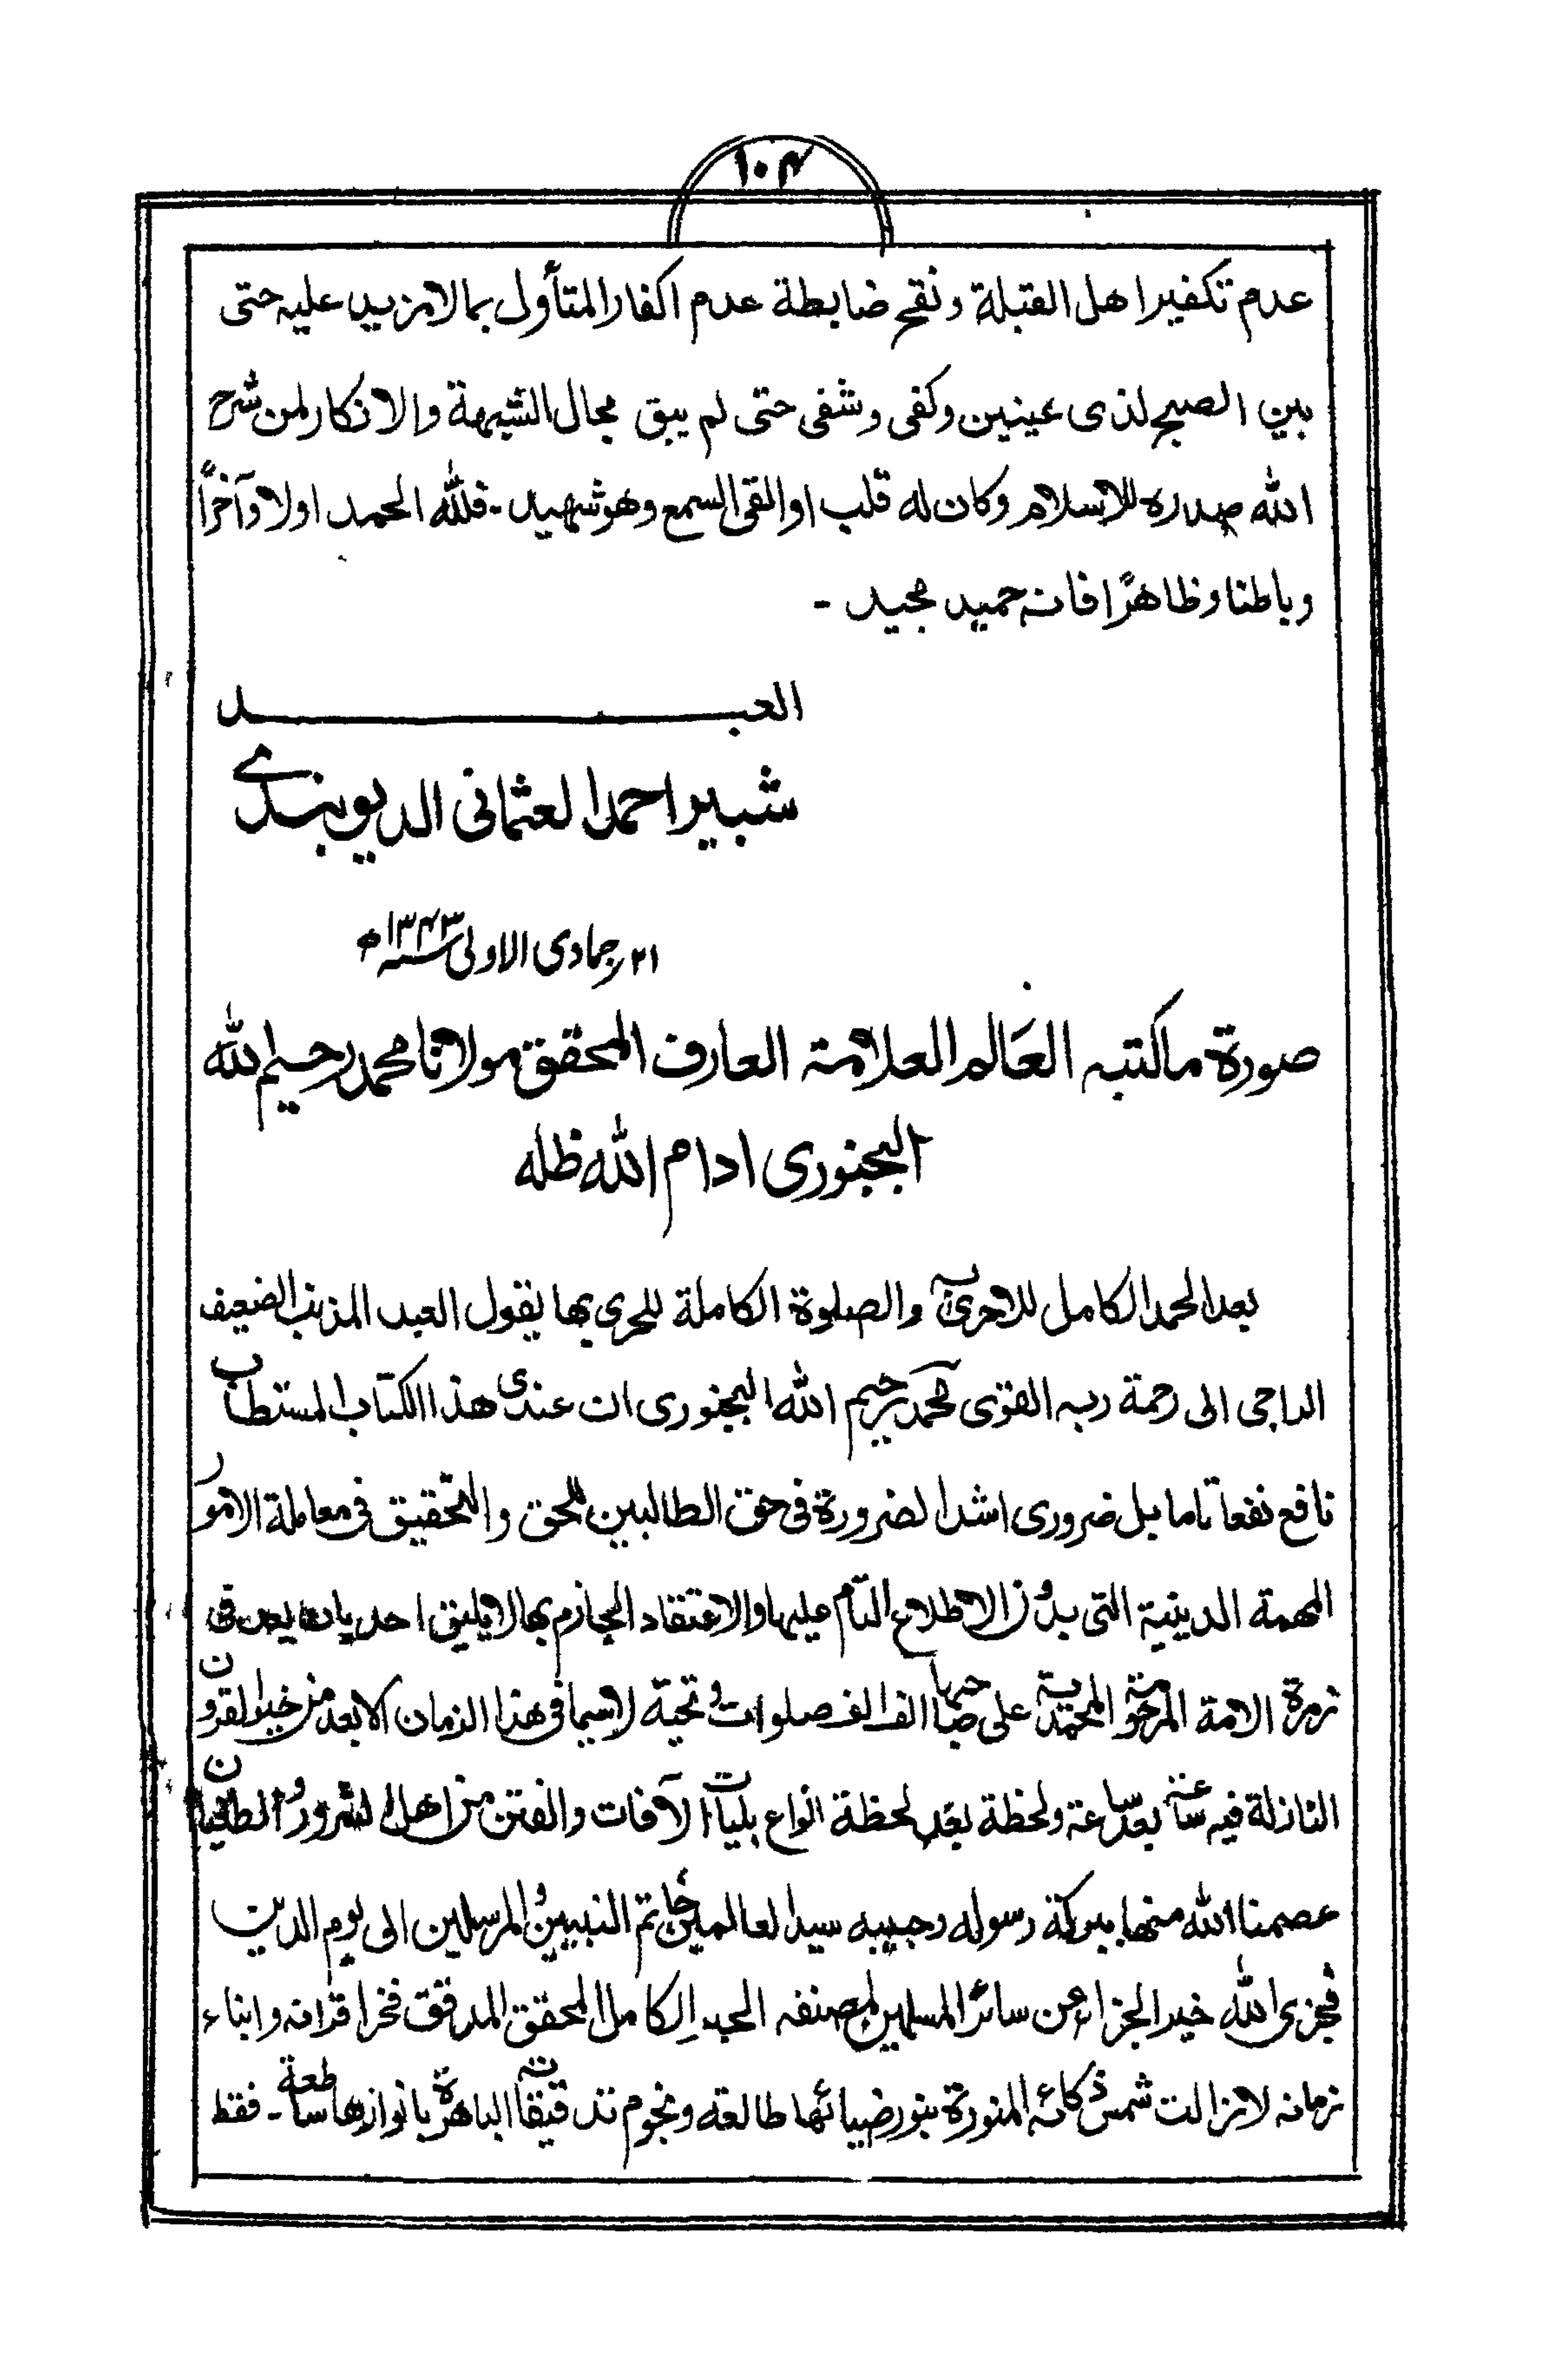 ۱۰۴
عدم تكفير اهل القبلة ونقح ضابطة عدم اكفار المتأول بما لا مزيد عليه حتى
بين الصبح لذى عينين وكفى وشفى حتى لم يبق مجال الشبهة والانكار لمن شرح
الله صدره للاسلام وكان له قلب او القى السمع وهو شهيد ـ فلله الحمد اولا وآخراً
وباطنا وظاهرًا فانه حميد مجيد ـ
العبــــد
شبير احمد العثمانى الديوبندے
۲۱ر جمادى الاولى سنہ ۱۳۴۳ھ
صورة ما كتبه العَالم العلامة العارف المحقق مولانا محمد رحيم الله
البجنورى ادام الله ظله
بعد الحمد الكامل للاحرى به والصلوة الكاملة للحرى بها يقول العبد المذنب الضعيف
الراجى الى رحمة ربه القوى محمد رحيم الله البجنورى ان عندى هذا الكتاب المستطاب
نافع نفعا تاما بل ضرورى اشد الضرورة فى حق الطالبين للحق والتحقيق فى معاملة الامور
المهمة الدينية التى بدون الاطلاع التام عليها والاعتقاد الجازم بها لا يليق احد بان يعد فى
زمرة الامة المرحومة المحمدية على صاحبها الف الف صلوات وتحية لاسيما فى هذا الزمان الابعد من خير القرون
النازلة فيه ساعة بعد ساعة ولحظة بعد لحظة انواع بليات الآفات والفتن من اهل الشرور والطغيان
عصمنا الله منها ببركة رسوله وحبيبه سيد العالمين خاتم النبيين والمرسلين الى يوم الدين
فجزى الله خير الجزاء عن سائر المسلمين لمصنفه الحبر الكامل المحقق المدقق فخر اقرانه وابناء
زمانه لازالت شمس ذكائه المنورة بنور ضيائها طالعة ونجوم تدقيقاته الباهرة بانوارها ساطعة ـ فقط